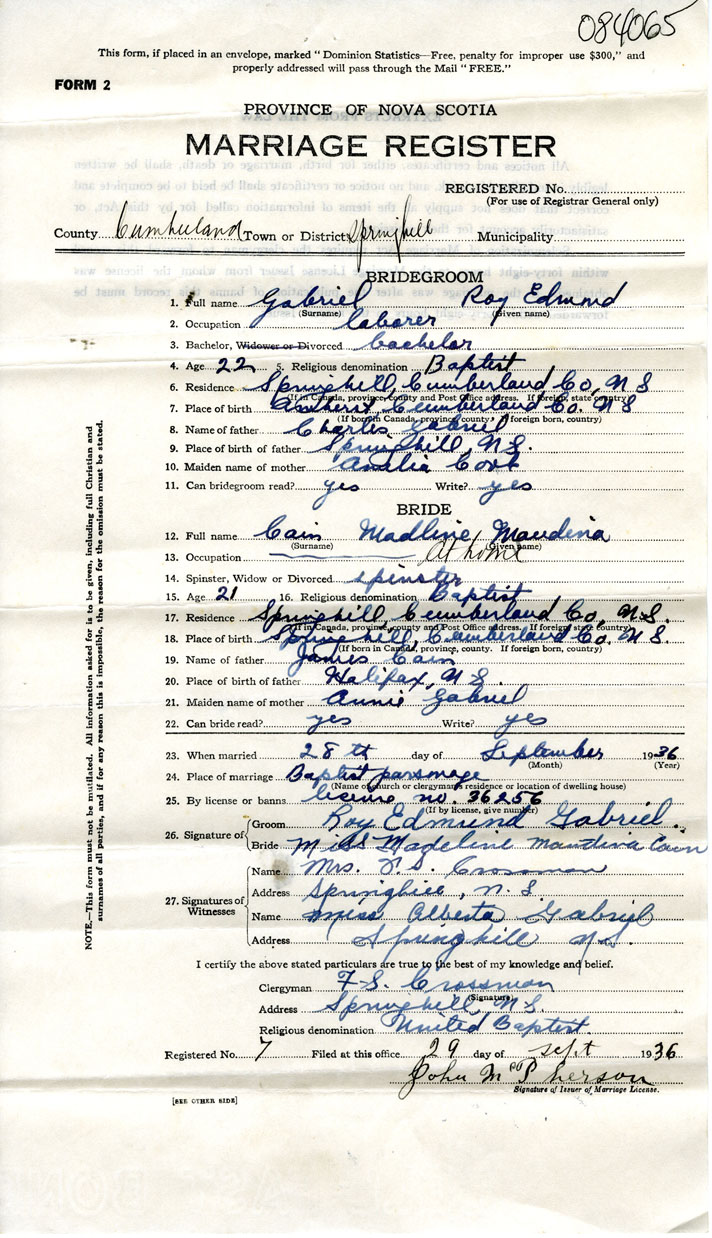 084065
This form, if placed in an envelope, marked "Dominion Statistics—Free, penalty for improper use $300," and
properly addressed will pass through the Mail "FREE."
FORM 2
PROVINCE OF NOVA SCOTIA
MARRIAGE REGISTER
REGISTERED No.
(For use of Registrar General only)
County Cumberland Town or District Springhill Municipality
BRIDEGROOM
1. Full name Gabriel Roy Edmund
(Surname) (Given name)
2. Occupation laborer
3. Bachelor, Widower or Divorced bachelor
4. Age 22 5. Religious denomination Baptist
6. Residence Springhill, Cumberland Co, N S
(If in Canada, province, county and Post Office address. If foreign, state country)
7. Place of birth Amherst, Cumberland Co. N S
(If born in Canada, province, county. If foreign born, country)
8. Name of father Charles Gabriel
9. Place of birth of father Springhill, N.S.
10. Maiden name of mother Amelia Cook
11. Can bridegroom read? yes Write? yes
BRIDE
12. Full name Cain Madline Maudina
(Surname) (Given name)
13. Occupation At home
14. Spinster, Widow or Divorced spinster
15. Age 21 16. Religious denomination Baptist
17. Residence Springhill, Cumberland Co, N.S.
(If in Canada, province, county and Post Office address. If foreign state country)
18. Place of birth Springhill, Cumberland Co. N S.
(If born in Canada, province, county. If foreign born, country)
19. Name of father James Cain
20. Place of birth of father Halifax, N S.
21. Maiden name of mother Annie Gabriel
22. Can bride read? yes Write? yes
23. When married 28 th day of September 1936
(Month) (Year)
24. Place of marriage Baptist parsonage
(Name of church or clergyman's residence or location of dwelling house)
25. By license or banns license no. 36256
(If by license, give number)
26. Signature of Groom Roy Edmund Gabriel.
Bride Miss Madeline Maudina Cain
27. Signatures of Witnesses
Name Mrs. F. S. Crossman
Address Springhill, N. S.
Name Miss Alberta Gabriel
Address Springhill N.S.
I certify the above stated particulars are true to the best of my knowledge and belief.
Clergyman F. S. Crossman
(Signature)
Address Springhill, N S.
Religious denomination United Baptist
Registered No. 7 Filed at this office 29 day of sept 1936
John McPherson
Signature of Issuer of Marriage License.
[SEE OTHER SIDE]
NOTE.—This form must not be mutilated. All information asked for is to be given, including full Christian and
surnames of all parties, and if for any reason this is impossible, the reason for the omission must be stated.